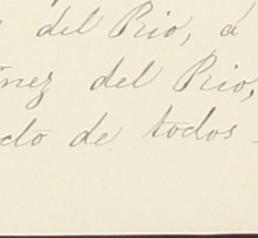 del Rio, á
inez del Rio,
do de todos